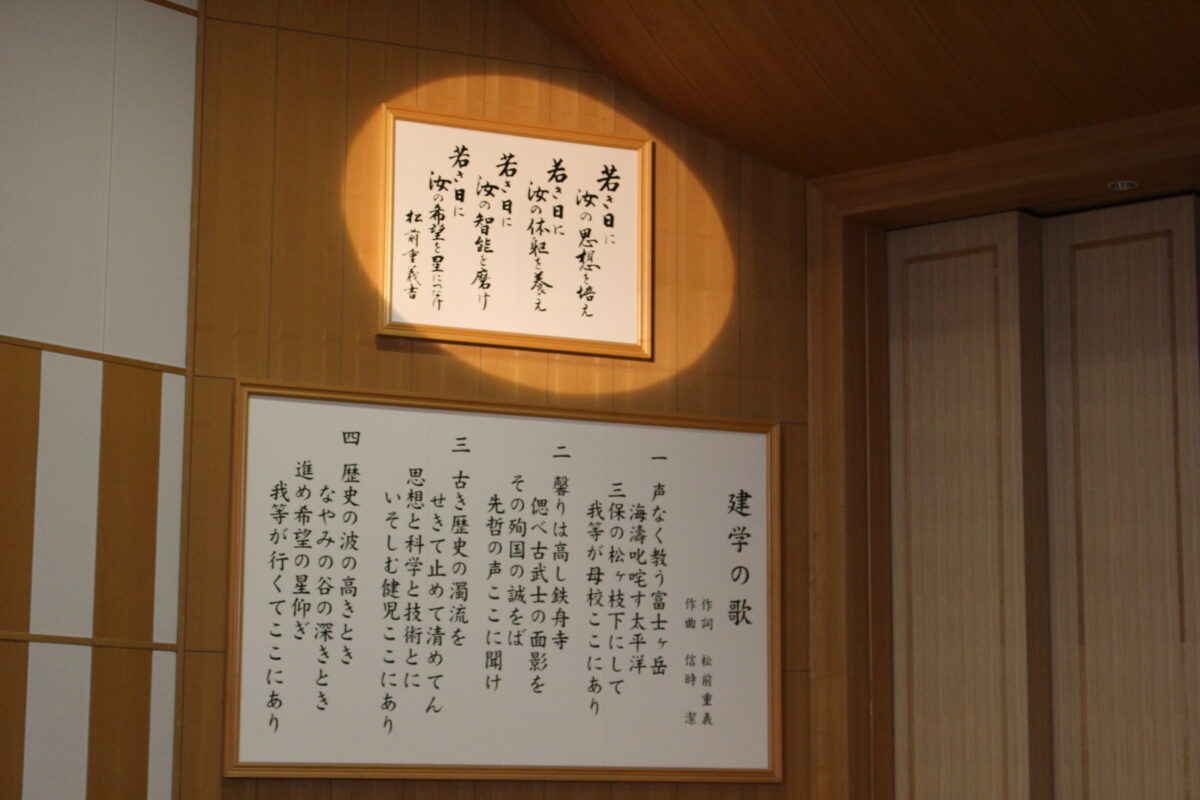 若き日に
汝の思想を培え
若き日に
汝の体躯を養え
若き日に
汝の智能を磨け
若き日に
汝の希望を星につなげ
松前重義書
建学の歌
作詞 松前重義
作曲 信時 潔
一 声なく教う富士ヶ岳
海濤叱咤す太平洋
三保の松ヶ枝下にして
我等が母校ここにあり
二 馨りは高し鉄舟寺
偲べ古武士の面影を
その殉国の誠をば
先哲の声ここに聞け
三 古き歴史の濁流を
せきて止めて清めてん
思想と科学と技術とに
いそしむ健児ここにあり
四 歴史の波の高きとき
なやみの谷の深きとき
進め希望の星仰ぎ
我等が行くてここにあり